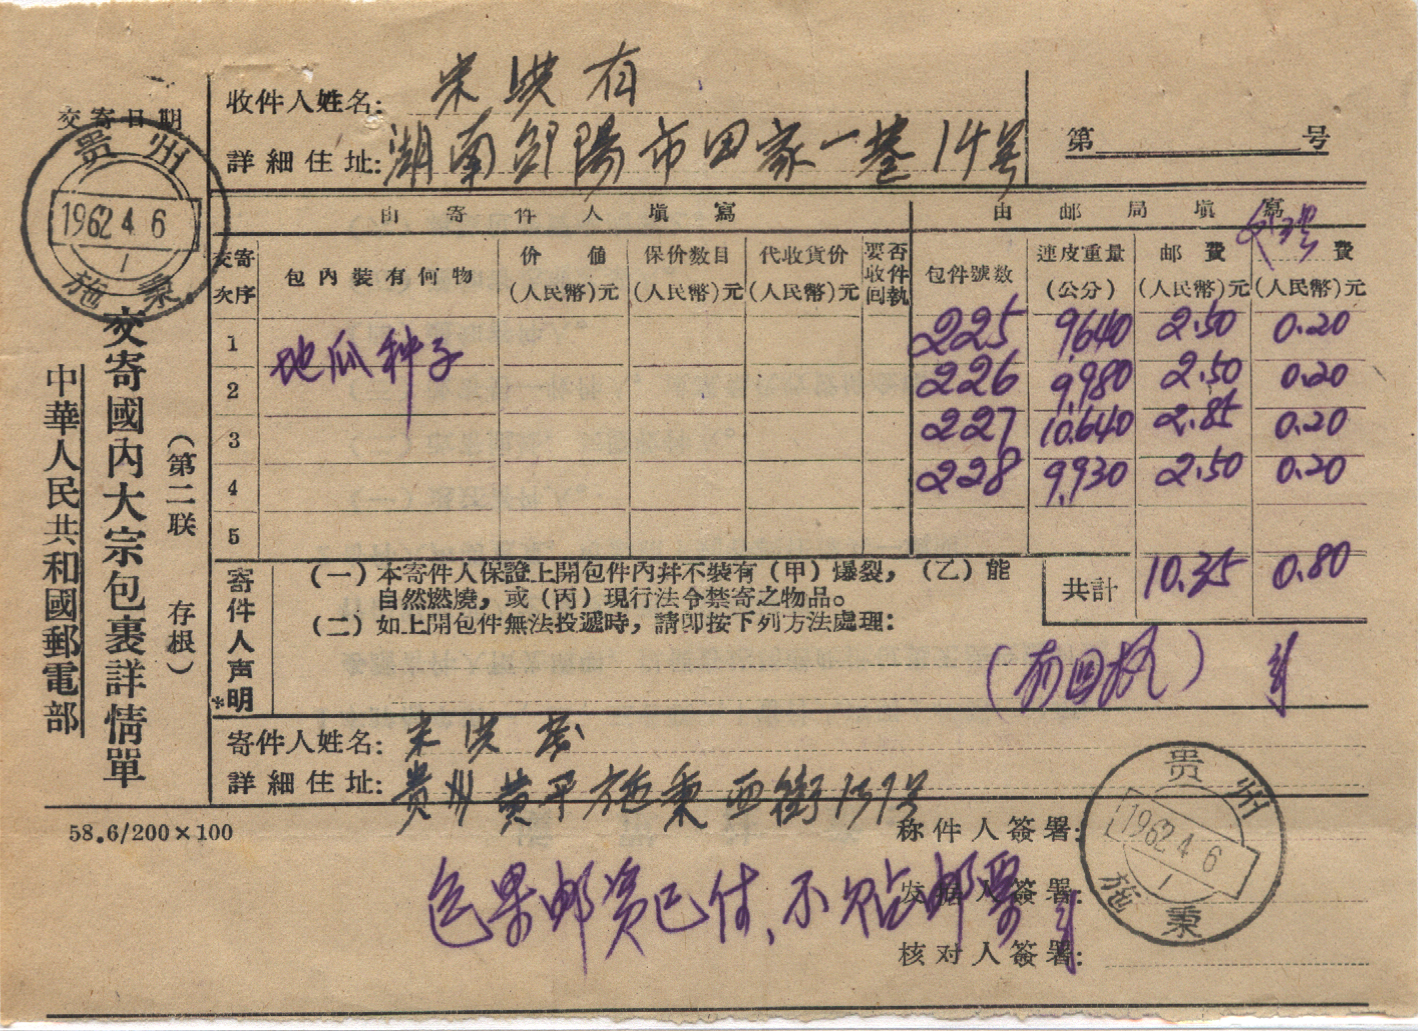 收件人姓名: 宋洪有
詳細住址: 湖南邵陽市田家一巷14号
第 号
交寄日期
贵州
1962 4 6
1
施秉
交寄國內大宗包裹詳情單
中華人民共和國郵電部
（第二联 存根）
由寄件人填寫 由邮局填寫
交寄次序 包內裝有何物 价値(人民幣)元 保价数目(人民幣)元 代收貨价(人民幣)元 要否收件回执 包件號数 連皮重量(公分) 邮費(人民幣)元 費(人民幣)元
1 地瓜种子 225 9.640 2.50 0.20
2 226 9.980 2.50 0.20
3 227 10.640 2.85 0.20
4 228 9.930 2.50 0.20
5
共計 10.35 0.80
寄件人声明
*
（一）本寄件人保證上開包件內幷不裝有（甲）爆裂，（乙）能
自然燃燒，或（丙）現行法令禁寄之物品。
（二）如上開包件無法投遞時，請卽按下列方法處理：
寄件人姓名: 宋洪
詳細住址: 贵州黄平施秉西街157号
58.6/200×100
称件人簽署:
发据人簽署:
核对人簽署:
包裹邮资已付、不贴邮票
贵州
1962 4 6
1
施秉